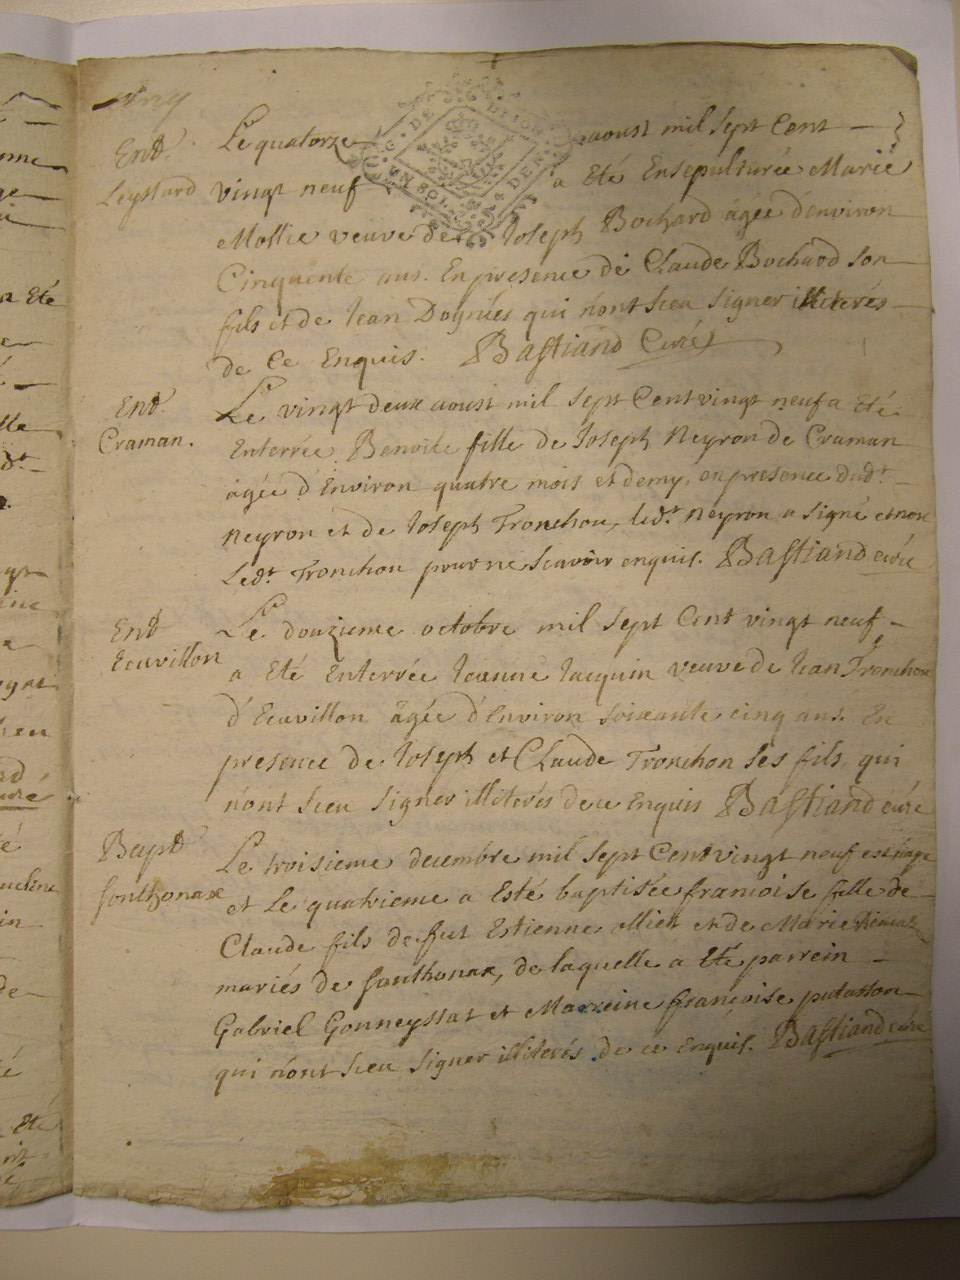 Cinq
Ent
Leyssard
Le quatorze aoust mil sept Cent
vingt neuf a Eté Ensepulturée Marie
Mollie veuve de Joseph Bochard âgée d'environ
Cinquente ans. En presence de Claude Bochard son
fils et de Jean Dognies qui n'ont sceu signer illiterés
de Ce Enquis. Bastiand Curé
Ent
Craman.
Le vingt deux aoust mil sept Cent vingt neuf a Eté
Enterrée Benoite fille de Joseph Neyron de Craman
âgée d'Environ quatre mois et demy, en presence dudt.
Neyron et de Joseph Tronchon, ledt. Neyron a signé et non
Ledt. Tronchon pour ne scavoir enquis. Bastiand curé
Ent
Ecuvillon
Le douzieme octobre mil sept Cent vingt neuf
a Eté Enterrée Jeanne Jacquin veuve de Jean Tronchon
d'Ecuvillon âgée d'Environ soixante cinq ans. En
presence de Joseph et Claude Tronchon ses fils, qui
n'ont sceu signer illiterés de ce Enquis Bastiand curé
Bapt
sonthonax
Le troisieme decembre mil sept Cent vingt neuf est
et Le quatrieme a Esté baptisée francoise fille de
Claude fils de fut Estienne ollier et de Marie
mariés de sonthonax, de laquelle a Eté parrein
Gabriel Gonneyssat et Marreine françoise putasson
qui n'ont sceu signer illiterés de ce Enquis. Bastiand curé